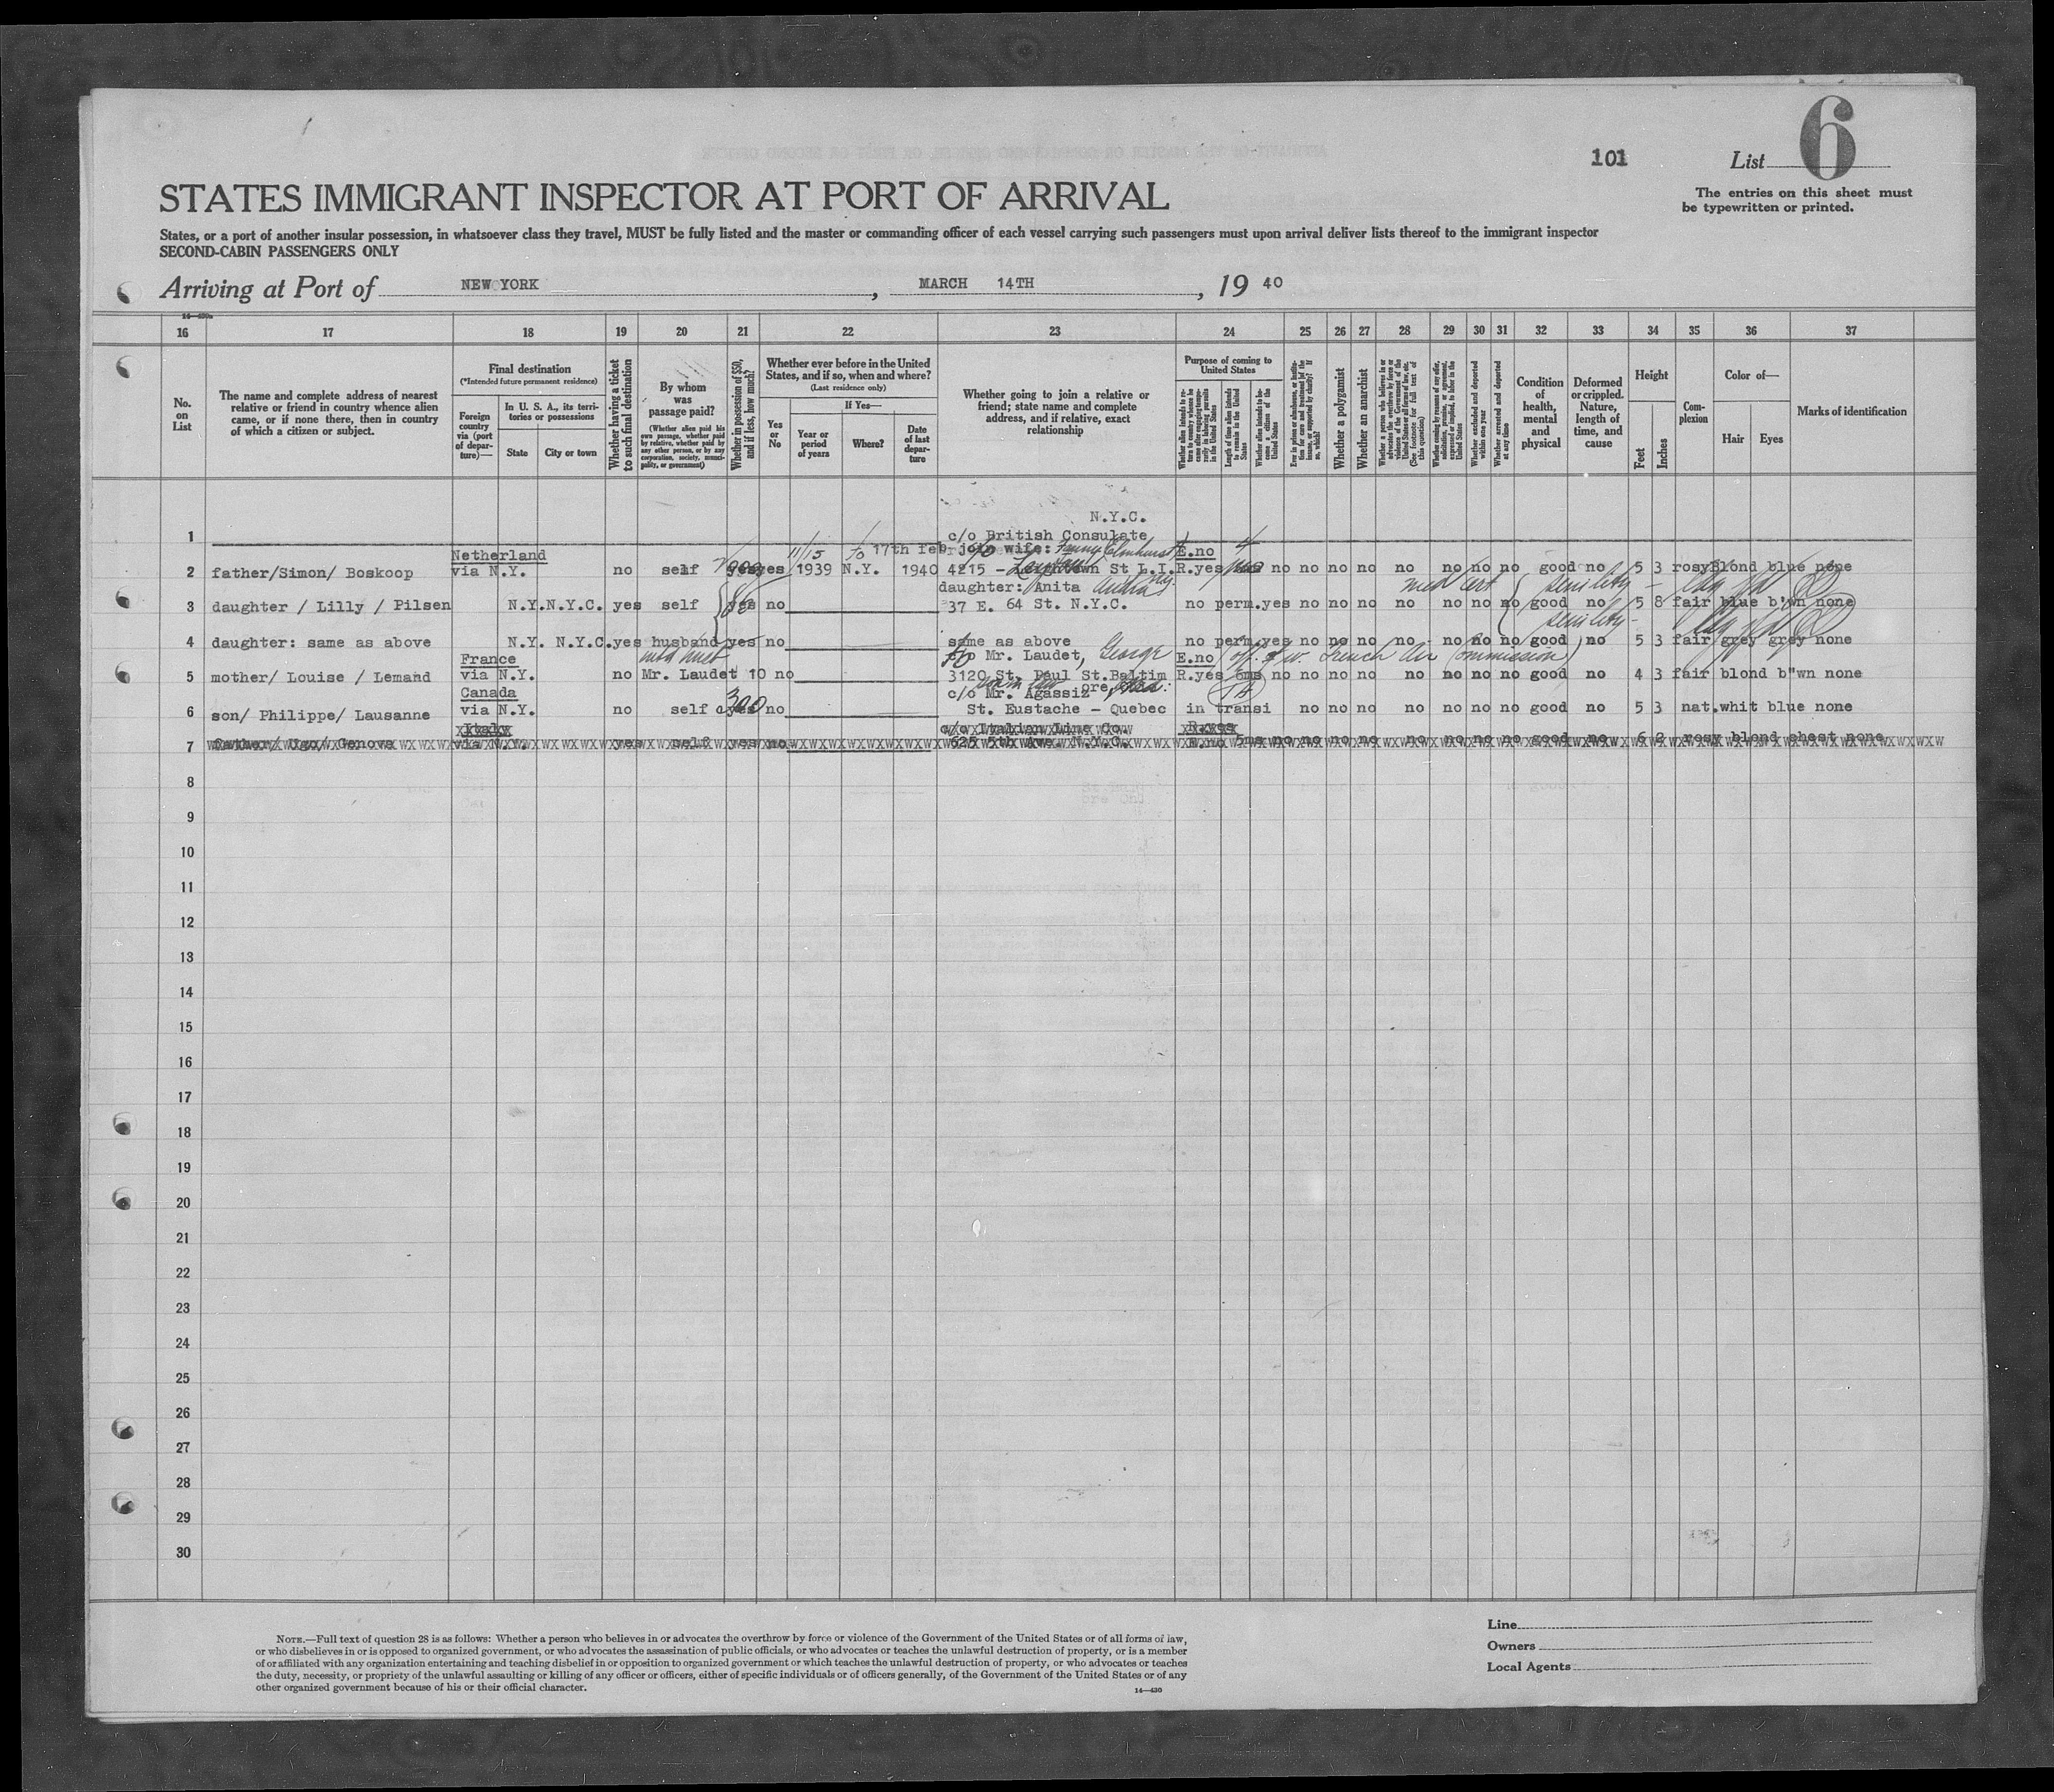 101
List 6
The entries on this sheet must
be typewritten or printed.
STATES IMMIGRANT INSPECTOR AT PORT OF ARRIVAL
States, or a port of another insular possession, in whatsoever class they travel, MUST be fully listed and the master or commanding officer of each vessel carrying such passengers must upon arrival deliver lists thereof to the immigrant inspector
SECOND-CABIN PASSENGERS ONLY
Arriving at Port of NEW YORK, MARCH 14TH, 19 40
16 17 18 19 20 21 22 23 24 25 26 27 28 29 30 31 32 33 34 35 36 37
No. on List
The name and complete address of nearest
relative or friend in country whence alien
came, or if none there, then in country
of which a citizen or subject.
Final destination
(*Intended future permanent residence)
Foreign country via (port of departure)—
In U. S. A., its territories or possessions
State
City or town
Whether having a ticket to such final destination
By whom was passage paid?
(Whether alien paid his own passage, whether paid by relative, whether paid by any other person, or by any corporation, society, municipality, or government)
Whether in possession of $50, and if less, how much?
Whether ever before in the United
States, and if so, when and where?
(Last residence only)
Yes or No
If Yes—
Year or period of years
Where?
Date of last departure
Whether going to join a relative or
friend; state name and complete
address, and if relative, exact
relationship
Purpose of coming to United States
Whether a polygamist
Whether an anarchist
Condition of health, mental and physical
Deformed or crippled. Nature, length of time, and cause
Height
Feet
Inches
Complexion
Color of—
Hair
Eyes
Marks of identification
N.Y.C.
1 c/o British Consulate
Netherland 11/15 to 17th feb. join wife: Elmhurst E.no
2 father/Simon/ Boskoop via N.Y. no self yes 1939 N.Y. 1940 4215 - St L.I. R.yes no no no no no no no no good no 5 3 rosy blond blue none
daughter: Anita med cert senility
3 daughter / Lilly / Pilsen N.Y. N.Y.C. yes self yes no 37 E. 64 St. N.Y.C. no perm. yes no no no no no no no good no 5 8 fair blue b'wn none
senility
4 daughter: same as above N.Y. N.Y.C. yes husband yes no same as above no perm. yes no no no no no no no good no 5 3 fair grey grey none
France Mr. Laudet, George E.no off. French Air Commission
5 mother/ Louise / Lemand via N.Y. no Mr. Laudet 10 no 3120 St. Paul St. Baltim R.yes 6ms no no no no no no no no good no 4 3 fair blond b"wn none
Canada 300 c/o Mr. Agassiz ore
6 son/ Philippe/ Lausanne via N.Y. no self yes no St. Eustache - Quebec in transi no no no no no no no good no 5 3 nat. whit blue none
Italy c/o Italian Line Co. R.yes
7 father/ Ugo/ Genova via N.Y. yes self yes no 625 5th Ave. N.Y.C. E.no 5ms no no no no no no no no good no 6 2 rosy blond chest none
8
9
10
11
12
13
14
15
16
17
18
19
20
21
22
23
24
25
26
27
28
29
30
NOTE.—Full text of question 28 is as follows: Whether a person who believes in or advocates the overthrow by force or violence of the Government of the United States or of all forms of law,
or who disbelieves in or is opposed to organized government, or who advocates the assassination of public officials, or who advocates or teaches the unlawful destruction of property, or is a member
of or affiliated with any organization entertaining and teaching disbelief in or opposition to organized government or which teaches the unlawful destruction of property, or who advocates or teaches
the duty, necessity, or propriety of the unlawful assaulting or killing of any officer or officers, either of specific individuals or of officers generally, of the Government of the United States or of any
other organized government because of his or their official character.
14—430
Line
Owners
Local Agents